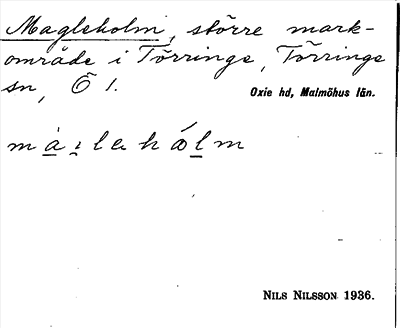 Magleholm, större mark-
område i Törringe, Törringe
sn, Ö 1.
Oxie hd, Malmöhus län.
NILS NILSSON 1936.